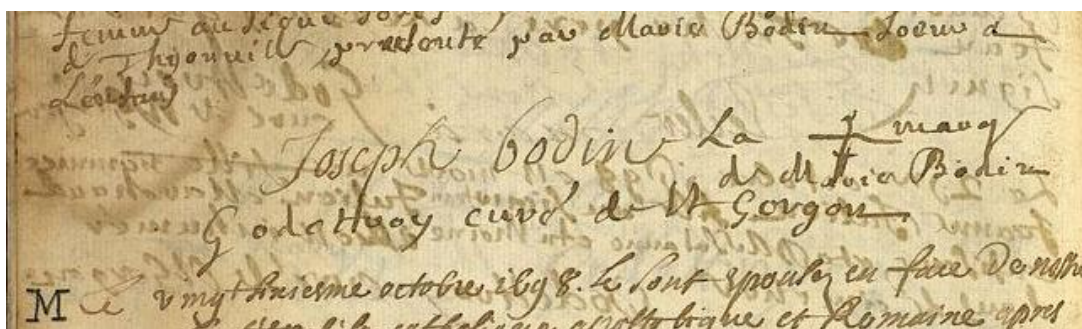 femme
d Thyonville presenté par Marie Bodin Soeur a
Joseph bodin La † marq
de Marie Bodin
Godetvoy curé de St Gorgon
M Le vingt huiesme octobre 1698. Se sont epousez en face De nostre
catholique apostolique et Romaine apres